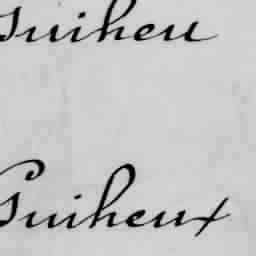 Guiheu
Guiheux